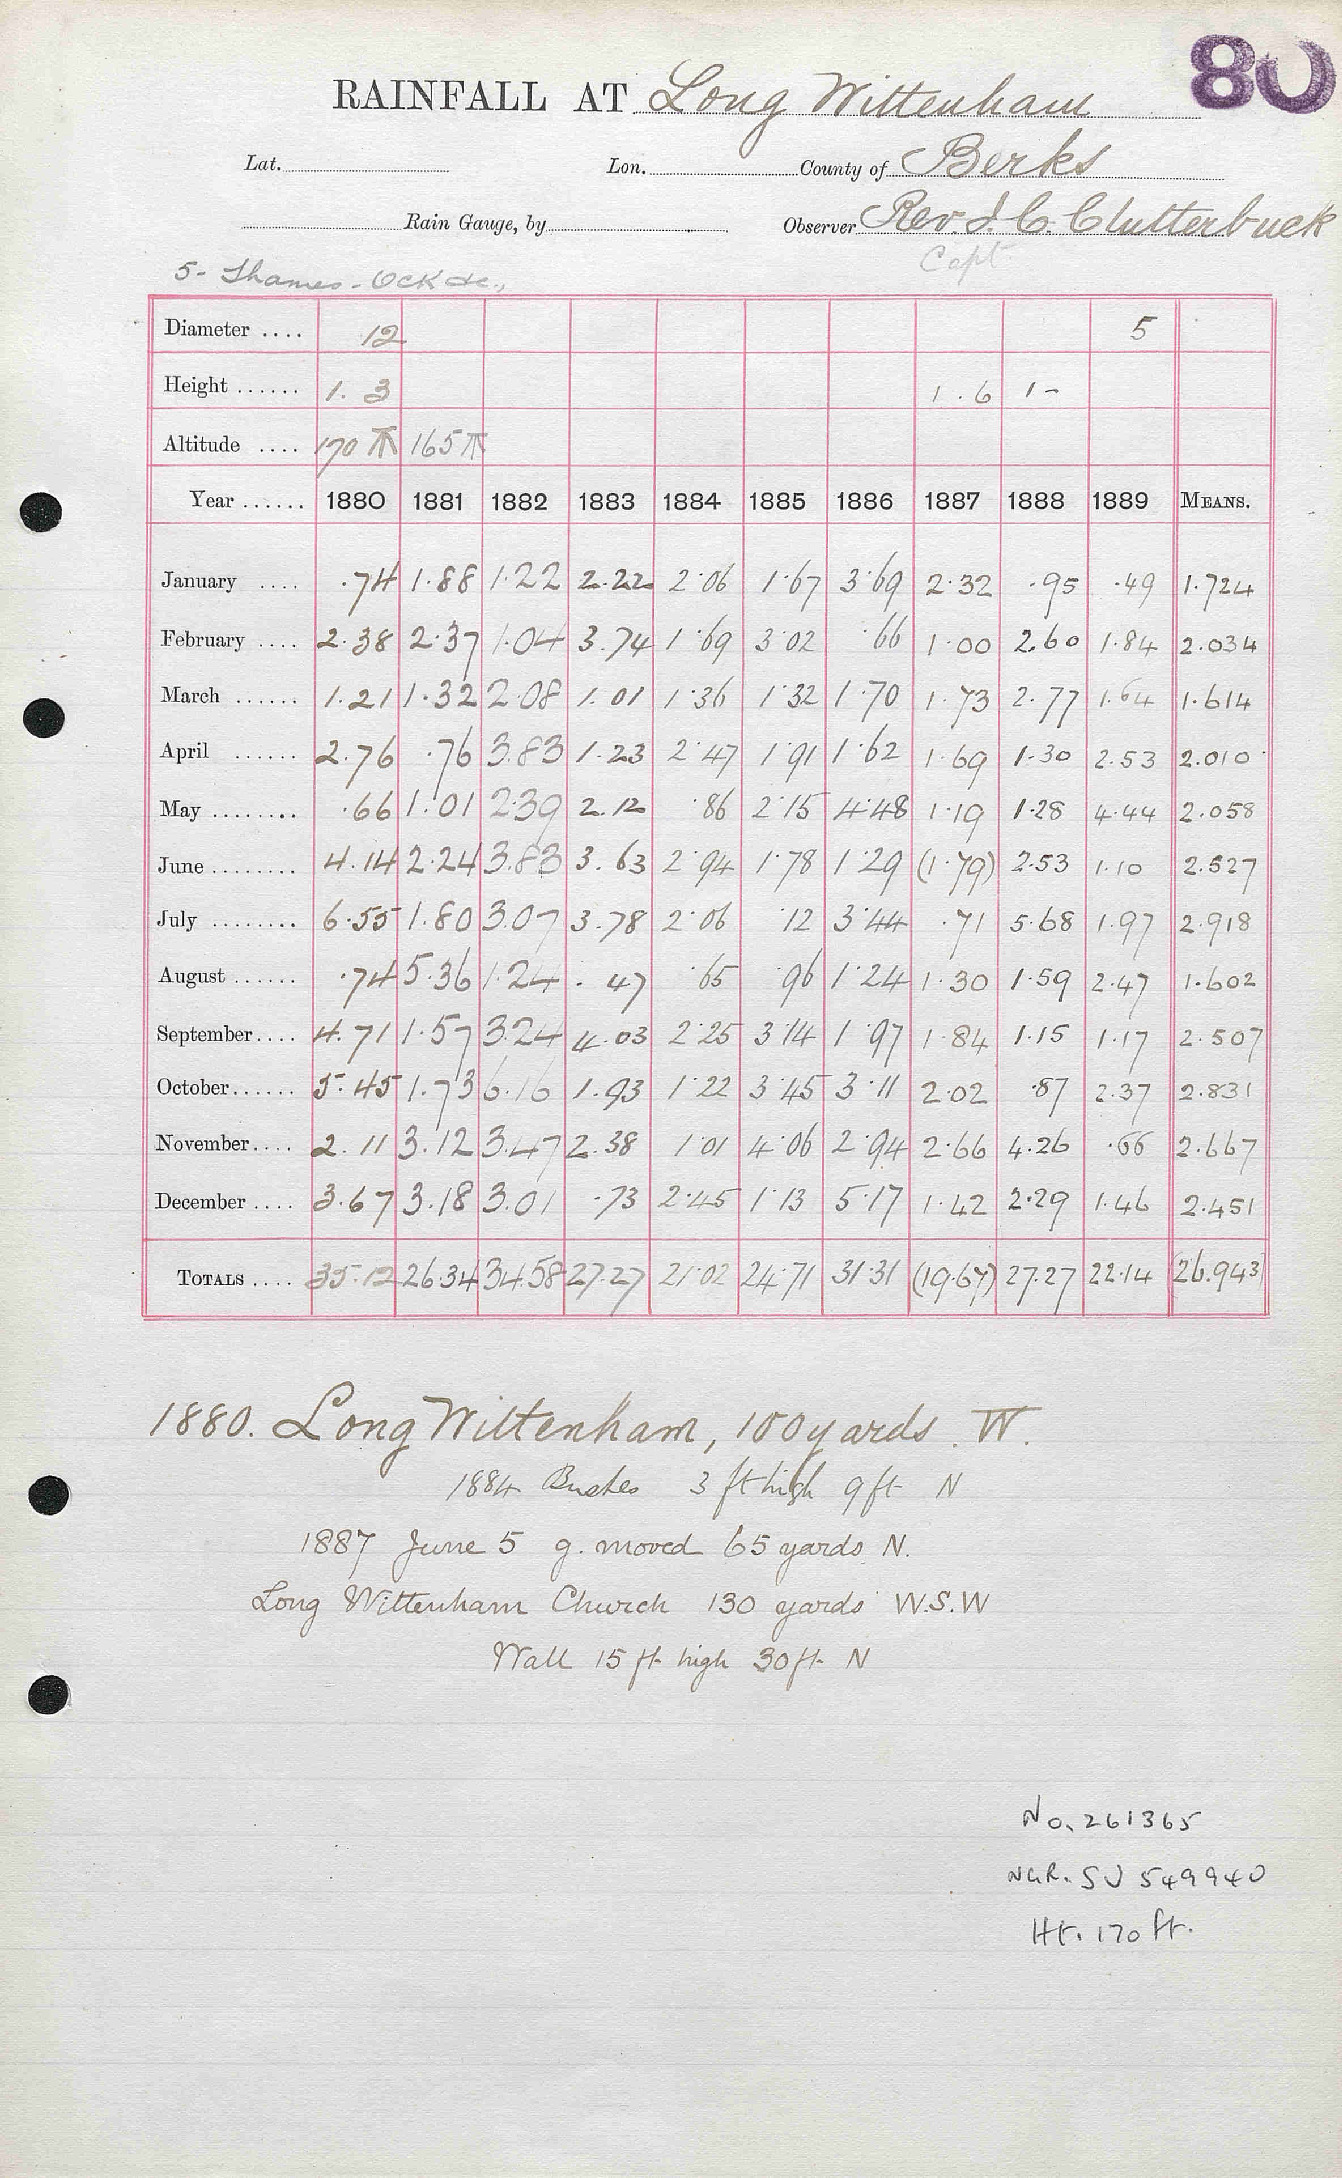 80
RAINFALL AT Long Wittenham
Lat. Lon. County of Berks
Rain Gauge, by Observer Rev. J. C. Clutterbuck
Capt
5 - Thames - Ock &c.,
Diameter .... 12 5
Height ...... 1. 3 1.6 1-
Altitude .... 170 165
Year ...... 1880 1881 1882 1883 1884 1885 1886 1887 1888 1889 MEANS.
January .... .74 1.88 1.22 2.22 2.06 1.67 3.69 2.32 .95 .49 1.724
February .... 2.38 2.37 1.04 3.74 1.69 3.02 .66 1.00 2.60 1.84 2.034
March ...... 1.21 1.32 2.08 1.01 1.36 1.32 1.70 1.73 2.77 1.64 1.614
April ...... 2.76 .76 3.83 1.23 2.47 1.91 1.62 1.69 1.30 2.53 2.010
May ........ .66 1.01 2.39 2.12 .86 2.15 4.48 1.19 1.28 4.44 2.058
June ........ 4.14 2.24 3.83 3.63 2.94 1.78 1.29 (1.79) 2.53 1.10 2.527
July ........ 6.55 1.80 3.07 3.78 2.06 .12 3.44 .71 5.68 1.97 2.918
August ...... .74 5.36 1.24 .47 .65 .96 1.24 1.30 1.59 2.47 1.602
September.... 4.71 1.57 3.24 4.03 2.25 3.14 1.97 1.84 1.15 1.17 2.507
October...... 5.45 1.73 6.16 1.93 1.22 3.45 3.11 2.02 .87 2.37 2.831
November.... 2.11 3.12 3.47 2.38 1.01 4.06 2.94 2.66 4.26 .66 2.667
December .... 3.67 3.18 3.01 .73 2.45 1.13 5.17 1.42 2.29 1.46 2.451
TOTALS .... 35.12 26.34 34.58 27.27 21.02 24.71 31.31 (19.67) 27.27 22.14 (26.943)
1880. Long Wittenham, 100 yards. W.
1884 Bushes 3 ft high 9 ft N
1887 June 5 g. moved 65 yards N.
Long Wittenham Church 130 yards W.S.W
Wall 15 ft high 30 ft N
No. 261365
NGR. SU 549940
Ht. 170 ft.